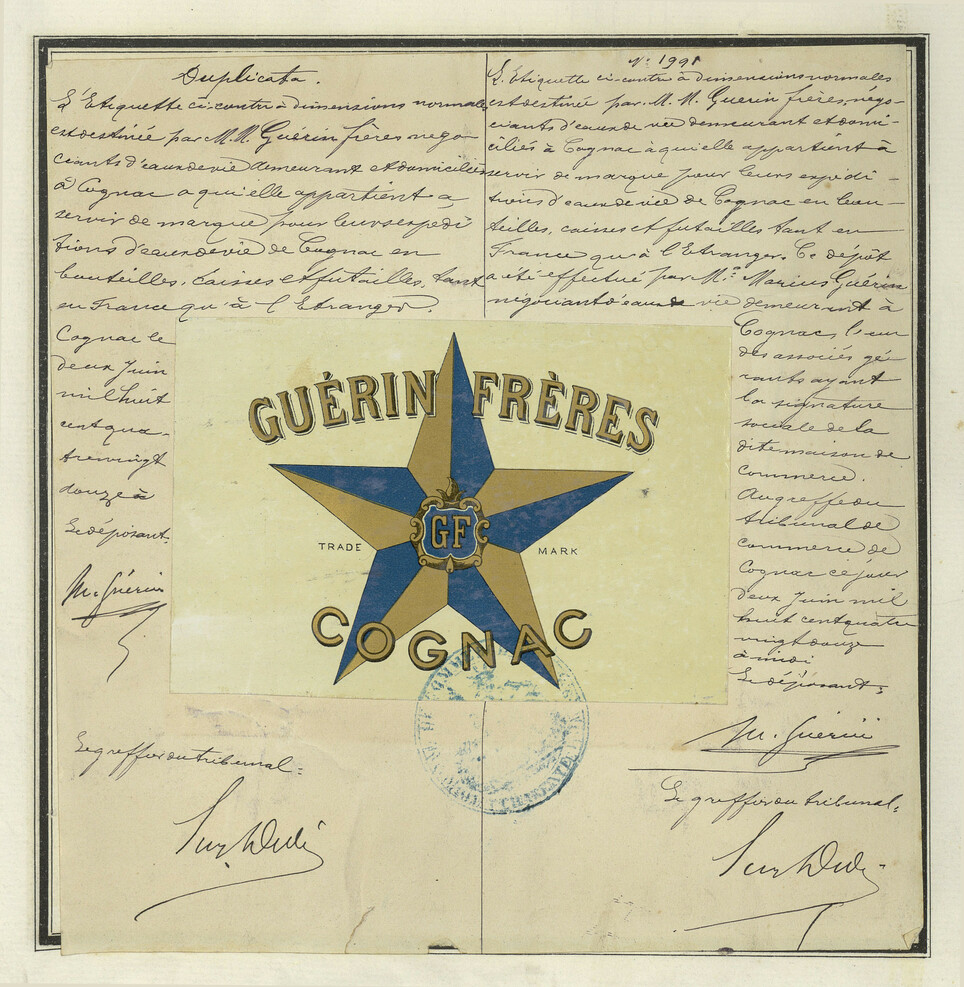 Duplicata.
L'Etiquette ci-contre à dimensions normales
est destinée par M.M. Guérin frères négo-
ciants d'eaux de vie demeurant et domiciliés
à Cognac a qui elle appartient a
servir de marque pour leurs expedi
tions d'eaux de vie de Cognac en
bouteilles, caisses et futailles, tant
en France qu'à l'Etranger.
Cognac le
deux Juin
mil huit
cent qua-
trevingt
douze à
Le déposant.
M. Guérin
Le greffier du tribunal:
N° 1991
L'Etiquette ci-contre à dimensions normales
est destinée par M.M. Guerin frères, négo-
ciants d'eaux de vie demeurant et domi-
ciliés à Cognac à qui elle appartient à
servir de marque pour leurs expédi-
tions d'eaux de vie de Cognac en bou-
teilles, caisses et futailles tant en
France qu'à l'Etranger. Ce dépôt
a été effectué par Mr. Marius Guérin
négociant d'eaux de vie demeurant à
Cognac, l'un
des associés gé
rants ayant
la signature
sociale de la
dite maison de
commerce.
Au greffe du
tribunal de
commerce de
Cognac ce jour
deux Juin mil
huit cent quatre
vingt douze
à midi
Le déposant:
M. Guérin
Le greffier du tribunal:
GUÉRIN FRÈRES
GF
TRADE MARK
COGNAC